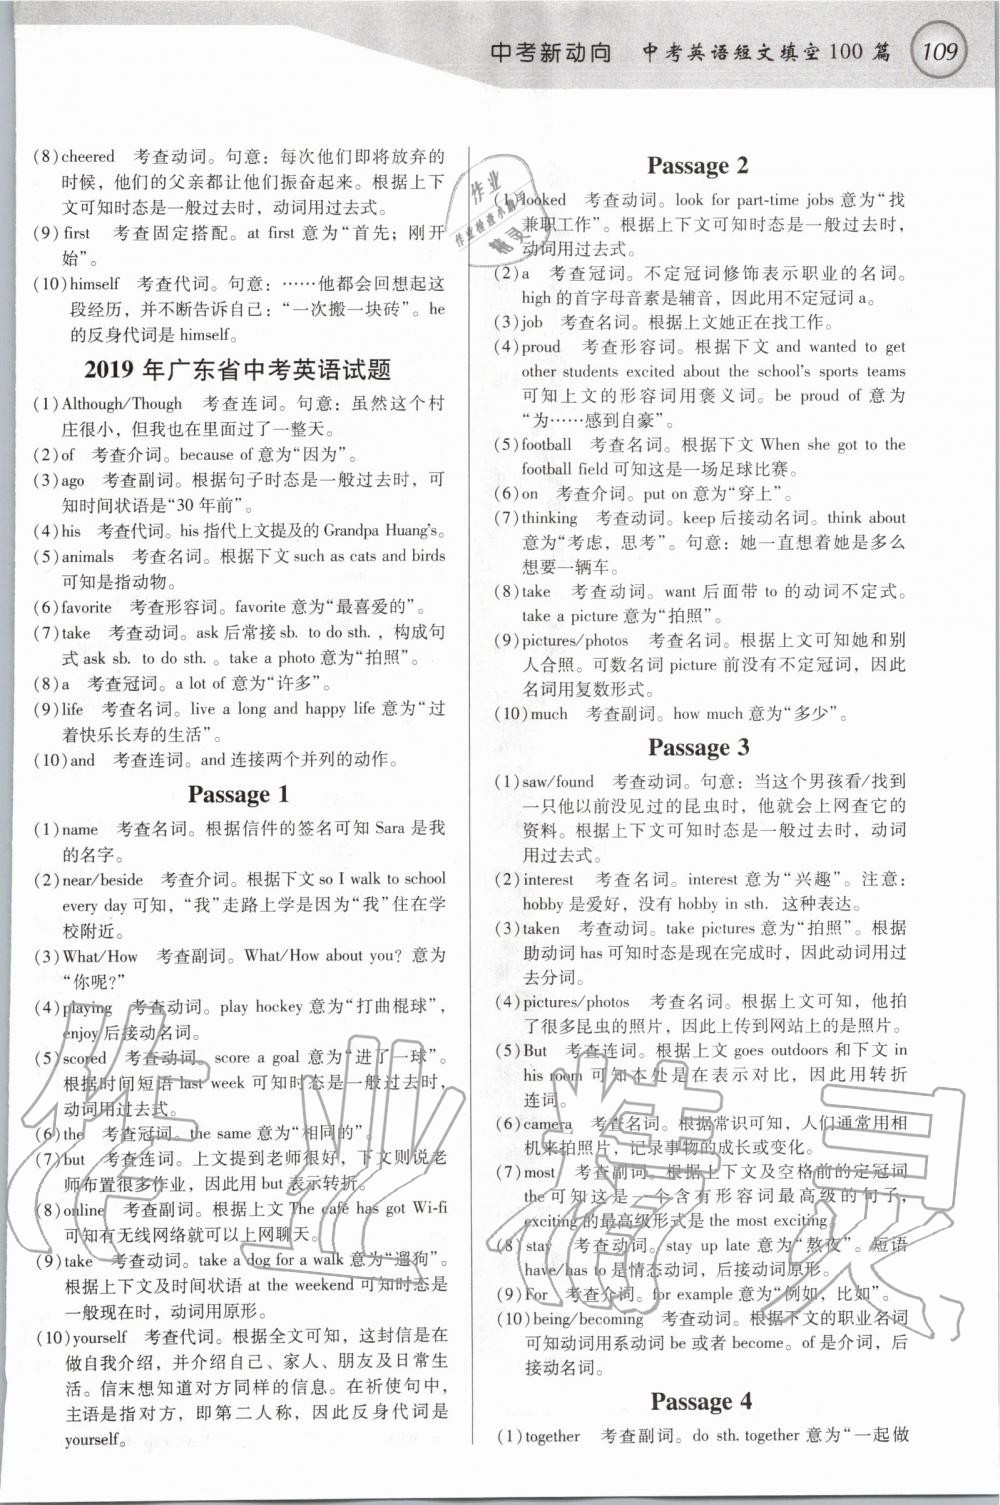 中考新动向 中考英语短文填空100篇 109
(8)cheered 考查动词。句意：每次他们即将放弃的
时候，他们的父亲都让他们振奋起来。根据上下
文可知时态是一般过去时，动词用过去式。
(9)first 考查固定搭配。at first 意为“首先；刚开
始”。
(10)himself 考查代词。句意：……他都会回想起这
段经历，并不断告诉自己：“一次搬一块砖”。he
的反身代词是 himself。
2019 年广东省中考英语试题
(1)Although/Though 考查连词。句意：虽然这个村
庄很小，但我也在里面过了一整天。
(2)of 考查介词。because of 意为“因为”。
(3)ago 考查副词。根据句子时态是一般过去时，可
知时间状语是“30 年前”。
(4)his 考查代词。his 指代上文提及的 Grandpa Huang's。
(5)animals 考查名词。根据下文 such as cats and birds
可知是指动物。
(6)favorite 考查形容词。favorite 意为“最喜爱的”。
(7)take 考查动词。ask 后常接 sb. to do sth.，构成句
式 ask sb. to do sth.。take a photo 意为“拍照”。
(8)a 考查冠词。a lot of 意为“许多”。
(9)life 考查名词。live a long and happy life 意为“过
着快乐长寿的生活”。
(10)and 考查连词。and 连接两个并列的动作。
Passage 1
(1)name 考查名词。根据信件的签名可知 Sara 是我
的名字。
(2)near/beside 考查介词。根据下文 so I walk to school
every day 可知，“我”走路上学是因为“我”住在学
校附近。
(3)What/How 考查副词。What/How about you？意为
“你呢?”
(4)playing 考查动词。play hockey 意为“打曲棍球”，
enjoy 后接动名词。
(5)scored 考查动词。score a goal 意为“进了一球”。
根据时间短语 last week 可知时态是一般过去时，
动词用过去式。
(6)the 考查冠词。the same 意为“相同的”。
(7)but 考查连词。上文提到老师很好，下文则说老
师布置很多作业，因此用 but 表示转折。
(8)online 考查副词。根据上文 The café has got Wi-fi
可知有无线网络就可以上网聊天。
(9)take 考查动词。take a dog for a walk 意为“遛狗”。
根据上下文及时间状语 at the weekend 可知时态是
一般现在时，动词用原形。
(10)yourself 考查代词。根据全文可知，这封信是在
做自我介绍，并介绍自己、家人、朋友及日常生
活。信末想知道对方同样的信息。在祈使句中，
主语是指对方，即第二人称，因此反身代词是
yourself。
Passage 2
(1)looked 考查动词。look for part-time jobs 意为“找
兼职工作”。根据上下文可知时态是一般过去时，
动词用过去式。
(2)a 考查冠词。不定冠词修饰表示职业的名词。
high 的首字母音素是辅音，因此用不定冠词 a。
(3)job 考查名词。根据上文她正在找工作。
(4)proud 考查形容词。根据下文 and wanted to get
other students excited about the school's sports teams
可知上文的形容词用褒义词。be proud of 意为
“为……感到自豪”。
(5)football 考查名词。根据下文 When she got to the
football field 可知这是一场足球比赛。
(6)on 考查介词。put on 意为“穿上”。
(7)thinking 考查动词。keep 后接动名词。think about
意为“考虑，思考”。句意：她一直想着她是多么
想要一辆车。
(8)take 考查动词。want 后面带 to 的动词不定式。
take a picture 意为“拍照”。
(9)pictures/photos 考查名词。根据上文可知她和别
人合照。可数名词 picture 前没有不定冠词，因此
名词用复数形式。
(10)much 考查副词。how much 意为“多少”。
Passage 3
(1)saw/found 考查动词。句意：当这个男孩看/找到
一只他以前没见过的昆虫时，他就会上网查它的
资料。根据上下文可知时态是一般过去时，动词
用过去式。
(2)interest 考查名词。interest 意为“兴趣”。注意：
hobby 是爱好，没有 hobby in sth. 这种表达。
(3)taken 考查动词。take pictures 意为“拍照”。根据
助动词 has 可知时态是现在完成时，因此动词用过
去分词。
(4)pictures/photos 考查名词。根据上文可知，他拍
了很多昆虫的照片，因此上传到网站上的是照片。
(5)But 考查连词。根据上文 goes outdoors 和下文 in
his room 可知本处是在表示对比，因此用转折
连词。
(6)camera 考查名词。根据常识可知，人们通常用相
机来拍照片，记录事物的成长或变化。
(7)most 考查副词。根据上下文及空格前的定冠词
the 可知这是一个含有形容词最高级的句子，
exciting 的最高级形式是 the most exciting。
(8)stay 考查动词。stay up late 意为“熬夜”。短语
have/has to 是情态动词，后接动词原形。
(9)For 考查介词。for example 意为“例如，比如”。
(10)being/becoming 考查动词。根据下文的职业名词
可知动词用系动词 be 或者 become。of 是介词，后
接动名词。
Passage 4
(1)together 考查副词。do sth. together 意为“一起做